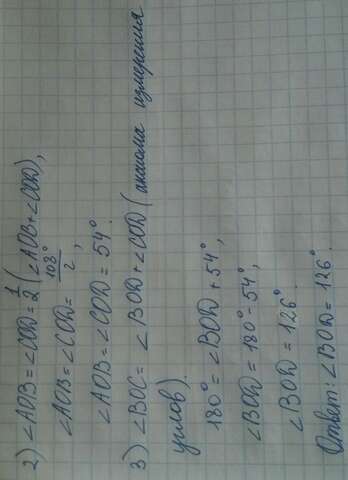 2) ∠AOB = ∠COD = 1/2 (∠AOB + ∠COD),
∠AOB = ∠COD = 108°/2,
∠AOB = ∠COD = 54°.
3) ∠BOC = ∠BOD + ∠COD (аксиома измерения
углов).
180° = ∠BOD + 54°,
∠BOD = 180° - 54°,
∠BOD = 126°.
Ответ: ∠BOD = 126°.